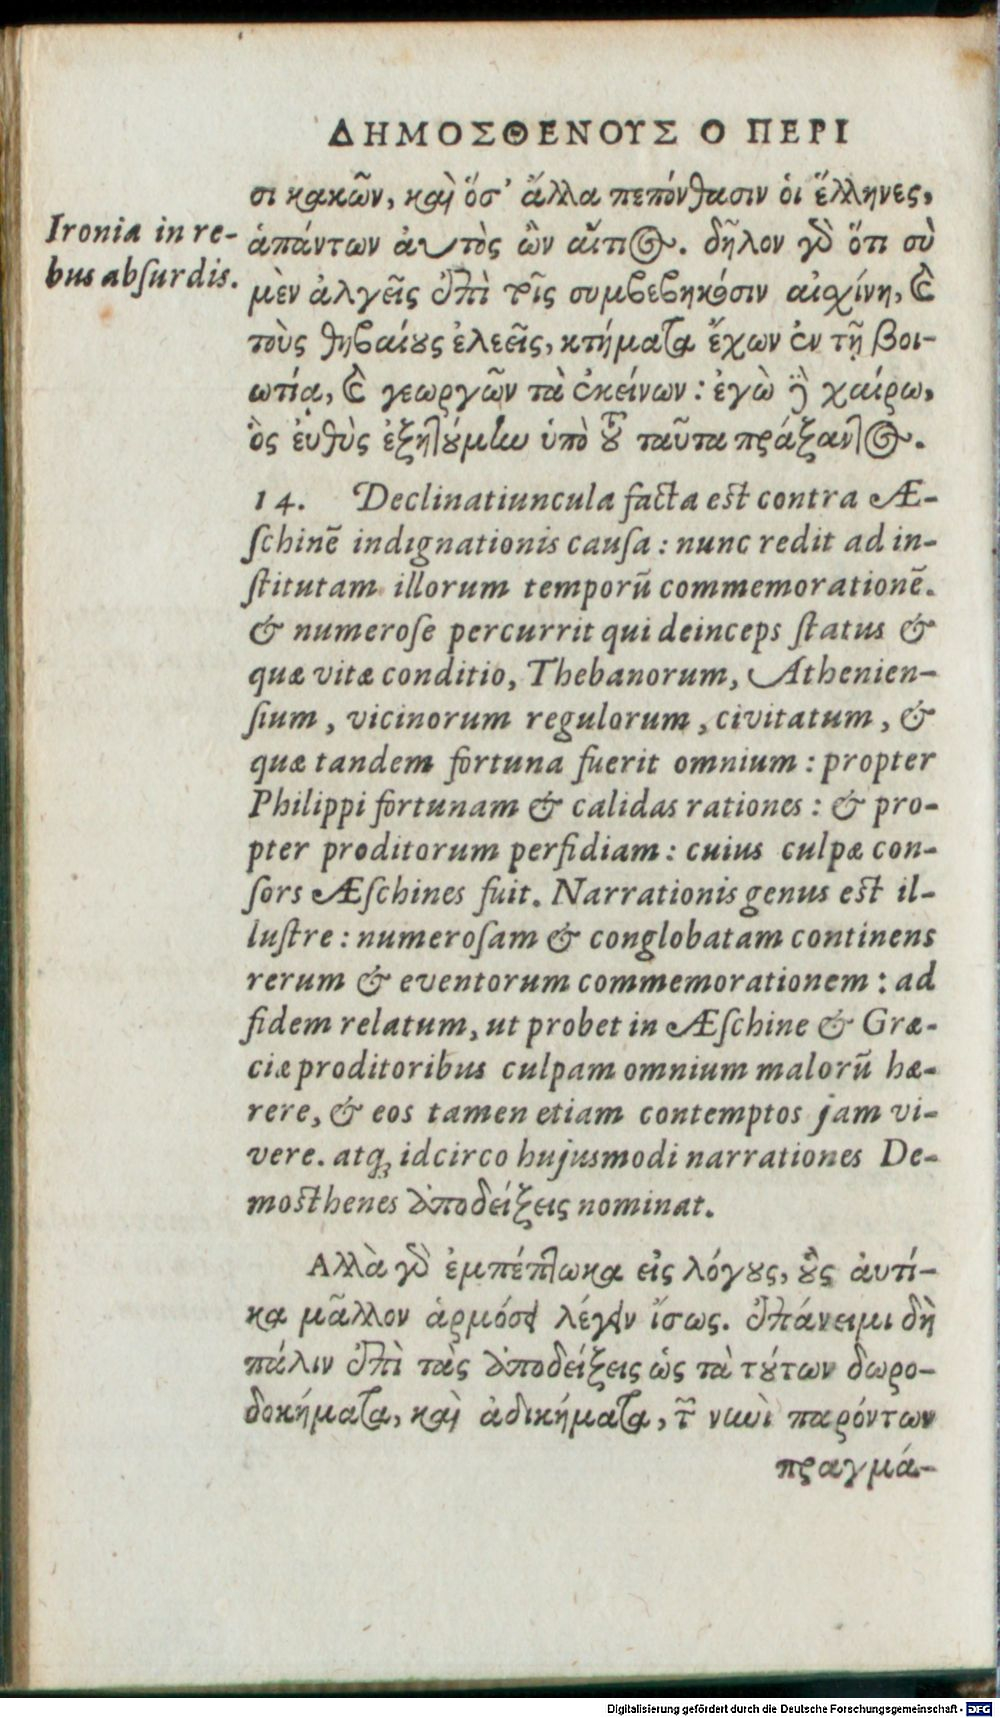 ΔΗΜΟΣΘΕΝΟΥΣ Ο ΠΕΡΙ
σι κακῶν, καὶ ὅσ' ἄλλα πεπόνθασιν ὁι ἕλληνες,
Ironia in re-
bus absurdis.
ἁπάντων ἀυτὸς ὢν αἴτιος. δῆλον γὸ ὅτι σὺ
μὲν ἀλγεῖς ἐπὶ τοῖς συμβεβηκόσιν αἰσχίνη, καὶ
τοὺς θηβαίους ἐλεεῖς, κτήματα ἔχων ἐν τῇ βοι-
ωτίᾳ, καὶ γεωργῶν τὰ ἐκείνων: ἐγὼ δὲ χαίρω,
ὃς ἐυθὺς ἐξῃτούμην ὑπὸ τοῦ ταῦτα πράξαντος.
14. Declinatiuncula facta est contra Æ-
schinē indignationis causa: nunc redit ad in-
stitutam illorum temporũ commemorationē.
& numerose percurrit qui deinceps status &
quæ vitæ conditio, Thebanorum, Athenien-
sium, vicinorum regulorum, civitatum, &
quæ tandem fortuna fuerit omnium: propter
Philippi fortunam & calidas rationes: & pro-
pter proditorum perfidiam: cuius culpæ con-
sors Æschines fuit. Narrationis genus est il-
lustre: numerosam & conglobatam continens
rerum & eventorum commemorationem: ad
fidem relatum, ut probet in Æschine & Græ-
ciæ proditoribus culpam omnium malorũ hæ-
rere, & eos tamen etiam contemptos jam vi-
vere. atq; idcirco hujusmodi narrationes De-
mosthenes ἀποδείξεις nominat.
Αλλὰ γὸ ἐμπέπτωκα εἰς λόγους, οὓς ἀυτί-
κα μᾶλλον ἁρμόσει λέγειν ἴσως. ἐπάνειμι δὴ
πάλιν ἐπὶ τὰς ἀποδείξεις ὡς τὰ τούτων δωρο-
δοκήματα, καὶ ἀδικήματα, τῶν νυνὶ παρόντων
πραγμά-
Digitalisierung gefördert durch die Deutsche Forschungsgemeinschaft - DFG